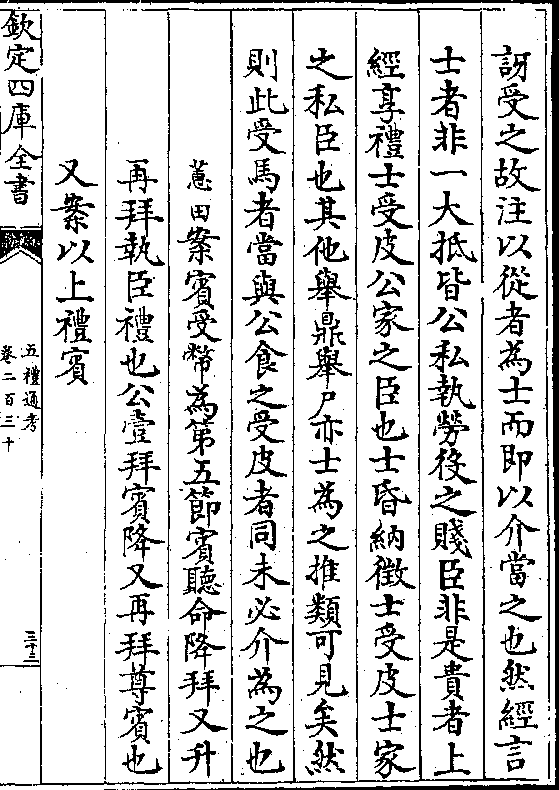 訝受之故注以從者為士而即以介當之也然經言
士者非一大抵皆公私執勞役之賤臣非是貴者上
經享禮士受皮公家之臣也士昏納徵士受皮士家
之私臣也其他舉鼎舉尸亦士為之推類可見矣然
則此受馬者當與公食之受皮者同未必介為之也
蕙田案賓受幣為第五節賓聽命降拜又升
再拜執臣禮也公壹拜賓降又再拜尊賓也
又案以上禮賓
欽定四庫全書
五禮通考
卷二百三十
三十三